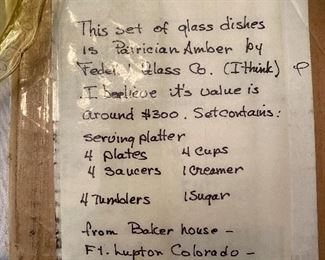 This set of glass dishes
is Patrician Amber by
Federal Glass Co. (I think)
I beelieve it's value is
around $300. Set contains:
serving platter
4 plates 4 cups
4 saucers 1 creamer
4 Tumblers 1 Sugar
from Baker house –
Ft. Lupton Colorado –